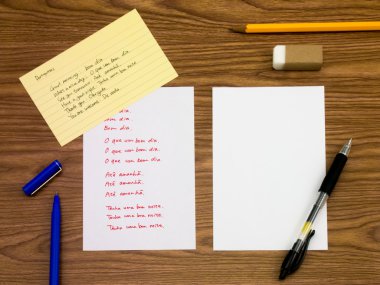 Portuguese
Good morning. Bom dia.
What a nice day. O que um bom dia.
See you tomorrow. Até amanhã.
Have a good night. Tenha uma boa noite.
Thank you. Obrigado.
You are welcome. De nada.
dia.
Bom dia.
Bom dia
O que um bom dia.
O que um bom dia.
O que um bom dia
Até amanhã.
Até amanhã.
Até amanhã.
Tenha uma boa noite.
Tenha uma boa noite.
Tenha uma boa noite.